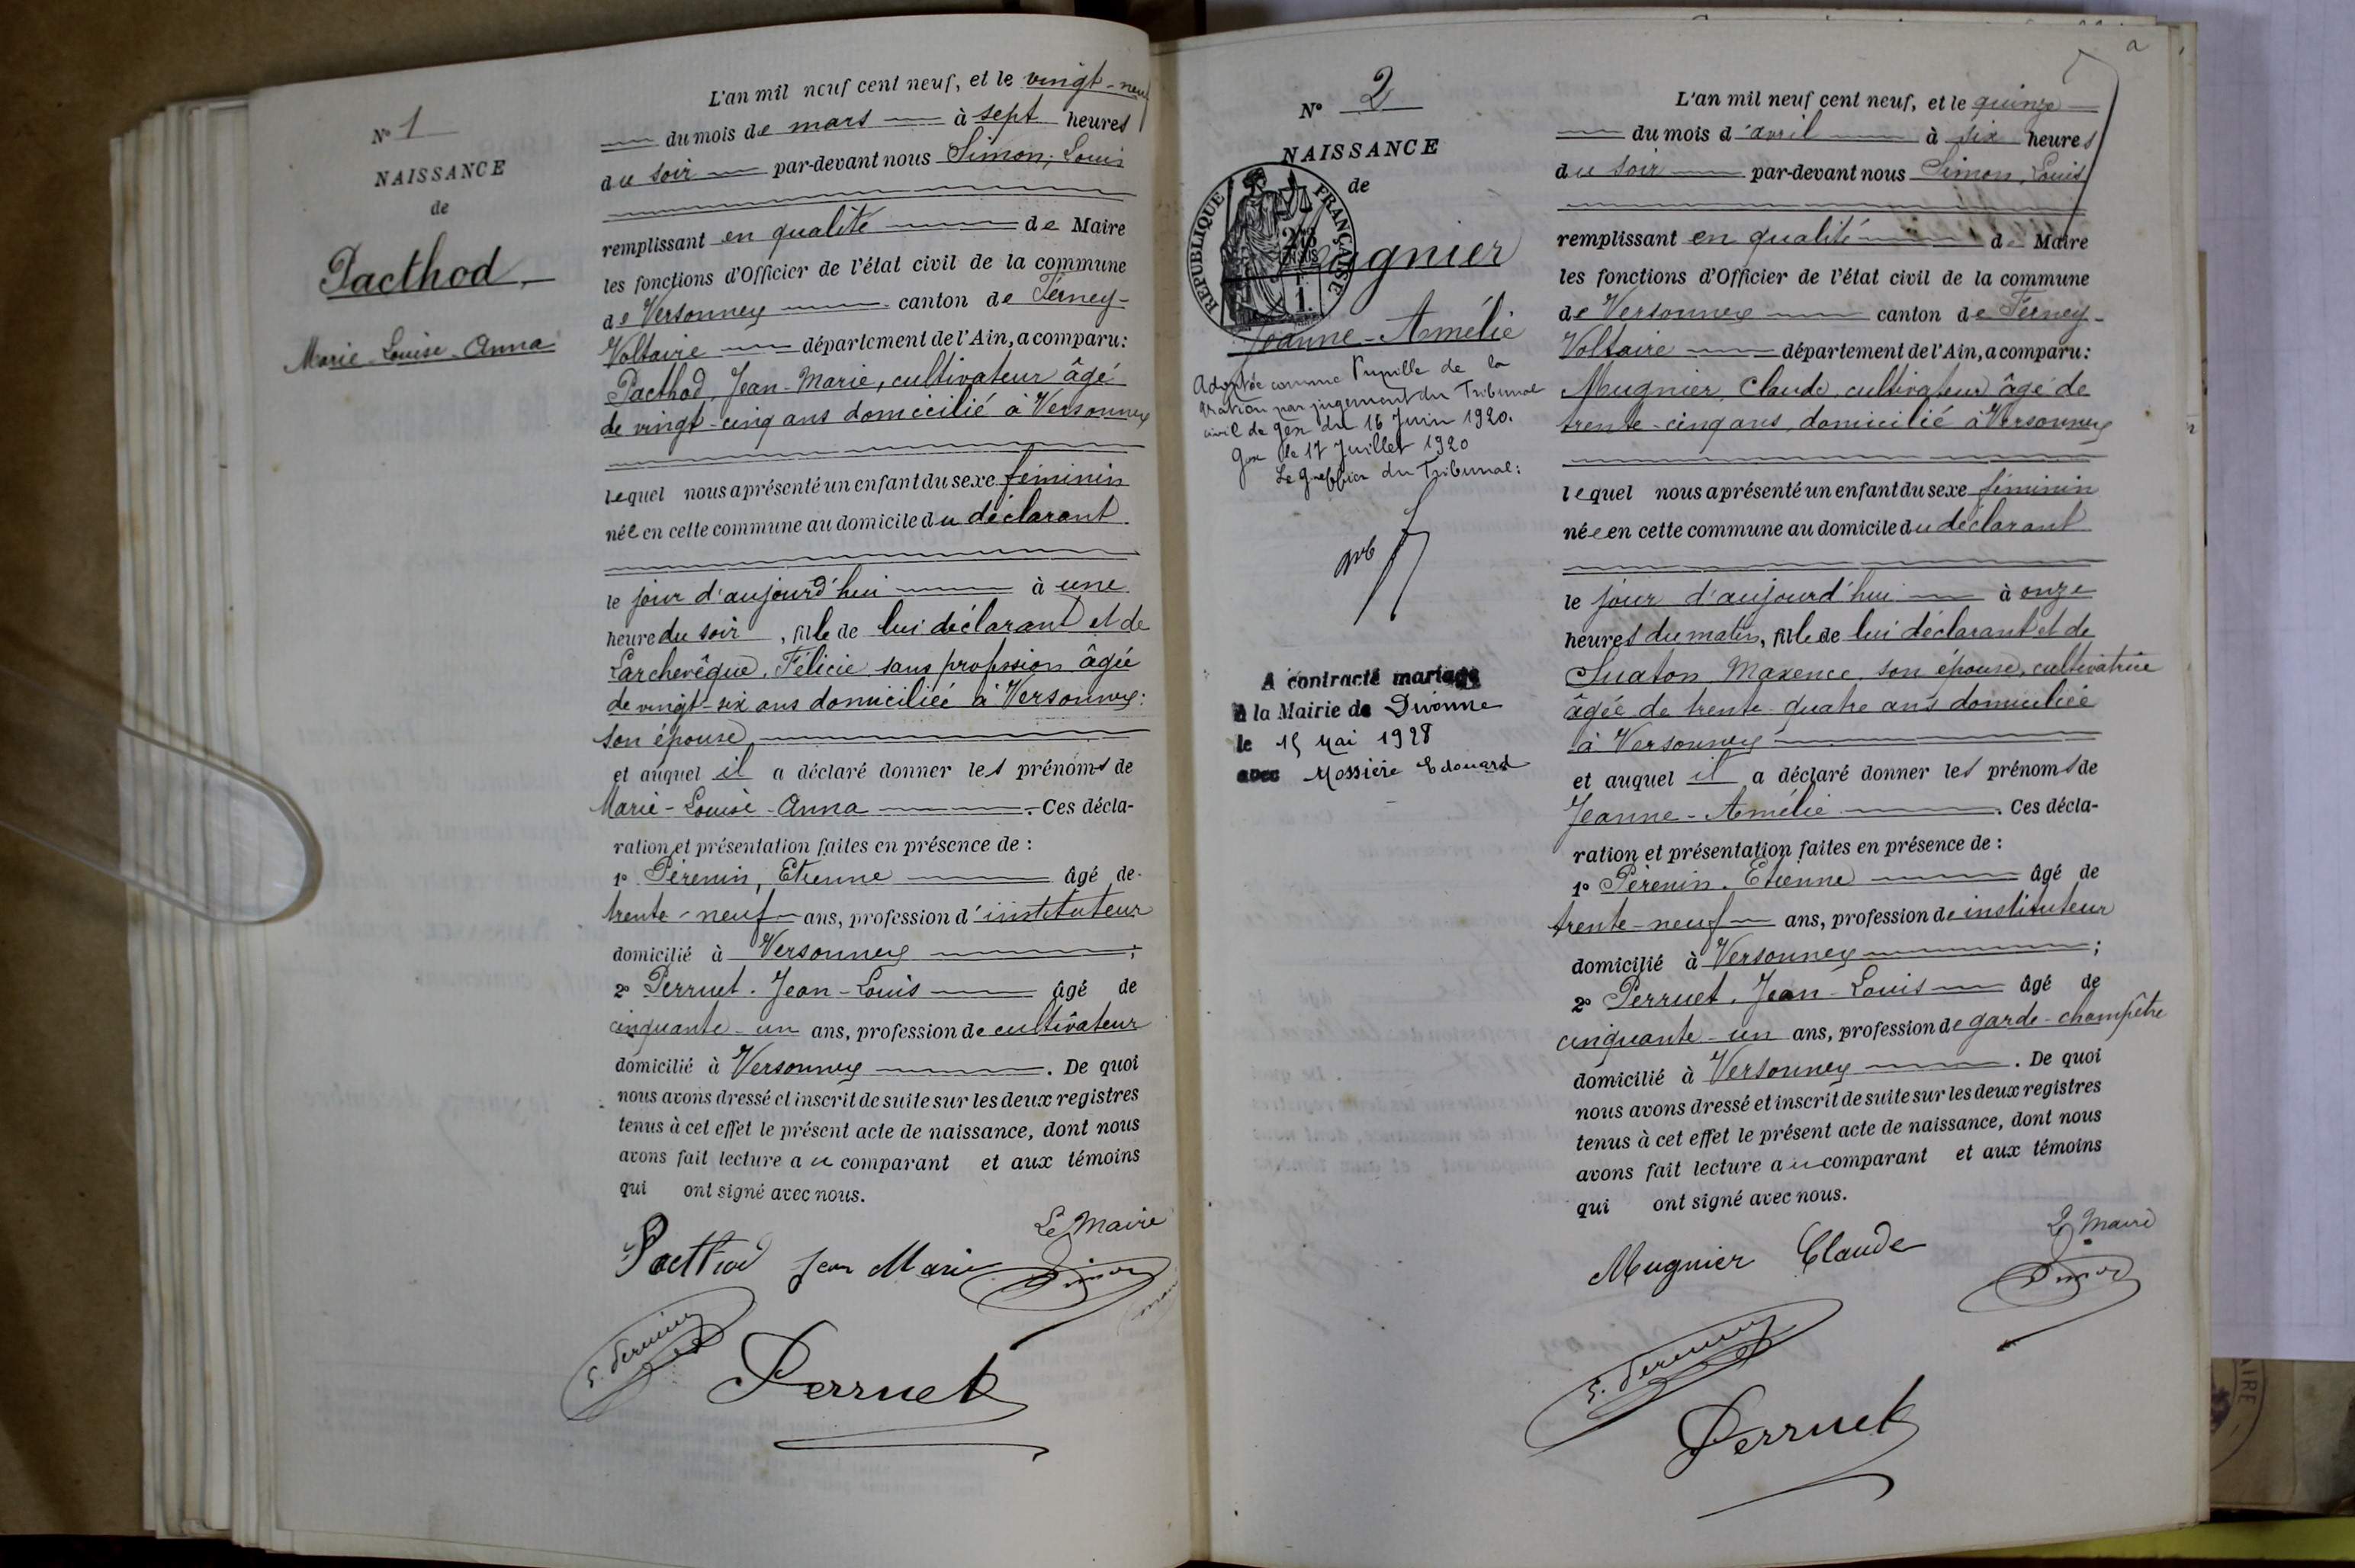 N° 1
NAISSANCE
de
Pacthod
Marie-Louise-Anna
L'an mil neuf cent neuf, et le vingt-neuf
du mois de mars à sept heures
du soir par-devant nous Simon, Louis
remplissant en qualité de Maire
les fonctions d'Officier de l'état civil de la commune
de Versonnex canton de Ferney-
Voltaire département de l'Ain, a comparu:
Pacthod, Jean-Marie, cultivateur âgé
de vingt-cinq ans domicilié à Versonnex
lequel nous a présenté un enfant du sexe féminin
née en cette commune au domicile du déclarant.
le jour d'aujourd'hui à une
heure du soir, fille de lui déclarant et de
Larchevêque, Félicie sans profession âgée
de vingt-six ans domiciliée à Versonnex:
son épouse
et auquel il a déclaré donner les prénoms de
Marie-Louise-Anna. Ces décla-
ration et présentation faites en présence de :
1° Pérenin, Etienne âgé de
trente-neuf ans, profession d'instituteur
domicilié à Versonnex ;
2° Perruet. Jean-Louis âgé de
cinquante-un ans, profession de cultivateur
domicilié à Versonnex. De quoi
nous avons dressé et inscrit de suite sur les deux registres
tenus à cet effet le présent acte de naissance, dont nous
avons fait lecture au comparant et aux témoins
qui ont signé avec nous.
Le Maire
Pacthod Jean Marie Simon
E. Perenin
Perruet
N° 2
NAISSANCE
de
RÉPUBLIQUE FRANÇAISE
Mugnier
Jeanne-Amélie
Adoptée comme Pupille de la
Nation par jugement du Tribunal
civil de Gex du 16 Juin 1920.
Gex le 17 Juillet 1920
Le Greffier du Tribunal:
A contracté mariage
à la Mairie de Divonne
le 15 Mai 1928
avec Mossière Edouard
L'an mil neuf cent neuf, et le quinze
du mois d'avril à six heures
du soir par-devant nous Simon, Louis
remplissant en qualité de Maire
les fonctions d'Officier de l'état civil de la commune
de Versonnex canton de Ferney-
Voltaire département de l'Ain, a comparu:
Mugnier, Claude, cultivateur âgé de
trente-cinq ans, domicilié à Versonnex
lequel nous a présenté un enfant du sexe féminin
née en cette commune au domicile du déclarant
le jour d'aujourd'hui à onze
heures du matin, fille de lui déclarant et de
Suaton, Maxence, son épouse, cultivatrice
âgée de trente-quatre ans domiciliée
à Versonnex
et auquel il a déclaré donner les prénoms de
Jeanne-Amélie. Ces décla-
ration et présentation faites en présence de :
1° Pérenin. Etienne âgé de
trente-neuf ans, profession de instituteur
domicilié à Versonnex ;
2° Perruet, Jean-Louis âgé de
cinquante-un ans, profession de garde-champêtre
domicilié à Versonnex. De quoi
nous avons dressé et inscrit de suite sur les deux registres
tenus à cet effet le présent acte de naissance, dont nous
avons fait lecture au comparant et aux témoins
qui ont signé avec nous.
Le Maire
Mugnier Claude Simon
E. Perenin
Perruet